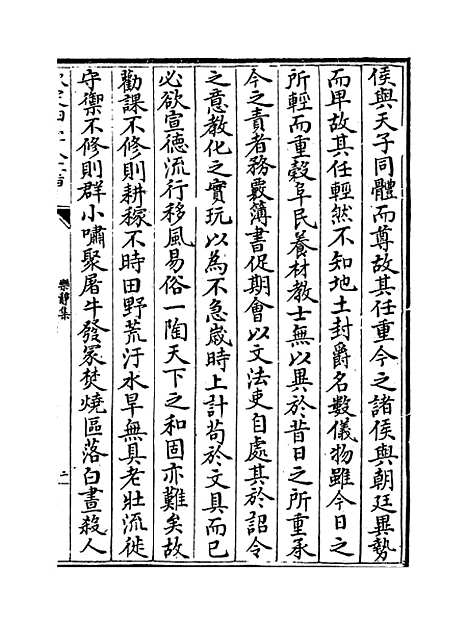 侯與天子同體而尊故其任重今之諸侯與朝廷異勢
而卑故其任輕然不知地土封爵名數儀物雖今日之
所輕而重穀阜民養材教士無以異於昔日之所重承
今之責者務覈簿書促期會以文法吏自處其於詔令
之意教化之實玩以為不急歲時上計苟於文具而已
必欲宣德流行移風易俗一陶天下之和固亦難矣故
勸課不修則耕稼不時田野荒汙水旱無具老壯流徙
守禦不修則群小嘯聚屠牛發冢焚燒區落白晝殺人
樂靜集
二